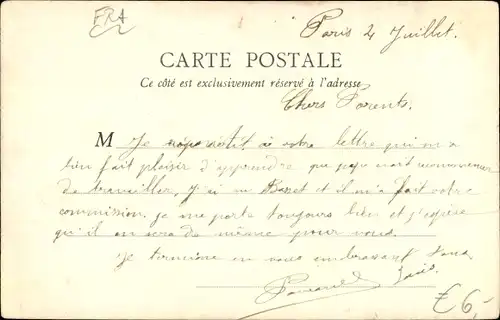 FRA
Paris 4 Juillet.
CARTE POSTALE
Ce côté est exclusivement réservé à l'adresse
Chers Parents
M Je à votre lettre qui m'a
bien fait plaisir d'apprendre que papa
de travailler, et il m'a fait votre
commission. je me porte toujours bien et j'espère
qu'il en sera de même pour vous.
Je termine en vous embrassant tous
€6,-